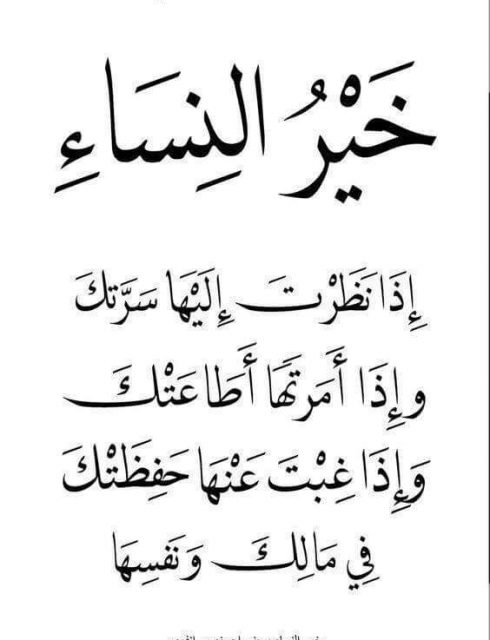 خَيْرُ النِسَاءِ
إِذَا نَظَرْتَ إِلَيْهَا سَرَّتكَ
وإِذَا أَمَرتَهَا أَطَاعَتْكَ
وَإِذَا غِبْتَ عَنْهَا حَفِظَتْكَ
فِي مَالِكَ وَنَفسِهَا